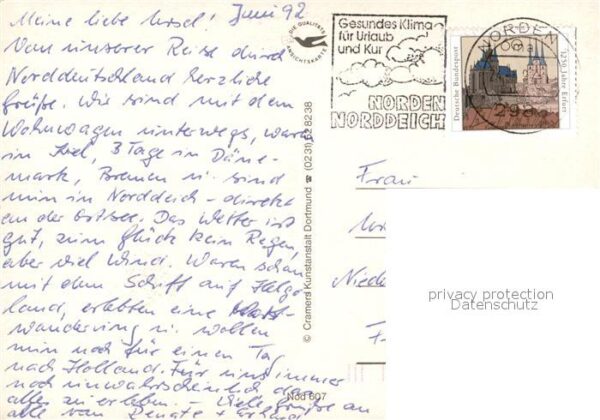 Meine liebe Ursel! Juni 92
Von unserer Reise durch
Norddeutschland herzliche
Grüße. Wir sind mit dem
Wohnwagen unterwegs, waren
in Kiel, 3 Tage in Däne-
mark, Bremen u. sind
nun in Norddeich - direkt
an der Ostsee. Das Wetter ist
gut, zum Glück kein Regen,
aber viel Wind. Waren schon
mit dem Schiff auf Helgo-
land, erlebten eine Watt-
wanderung u. wollen
nun noch für einen Tag
nach Holland. Für uns immer
noch unwahrscheinlich das
alles zu erleben. - Viele Grüße an
alle von Renate +
DIE QUALITÄTS
ANSICHTSKARTE
© Cramers Kunstanstalt Dortmund ☎ (0231) 62 82 38
Nod 607
Gesundes Klima
für Urlaub
und Kur
NORDEN
NORDDEICH
NORDEN
Deutsche Bundespost
1250 Jahre Erfurt
Frau
Niede
F
privacy protection
Datenschutz